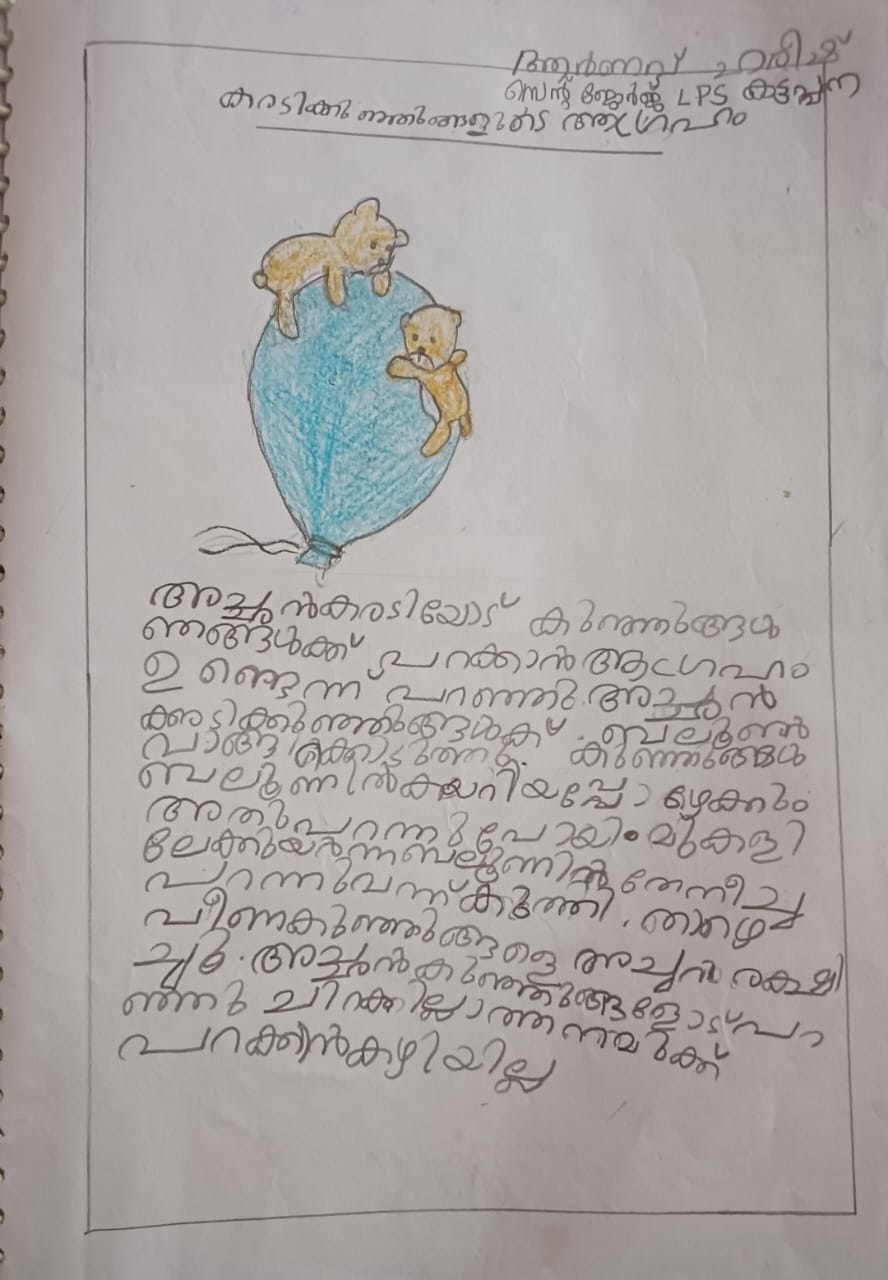 ആർണവ് ഹരീഷ്
സെന്റ് ജോർജ്ജ് LPS കട്ടപ്പന
കരടിക്കുഞ്ഞുങ്ങളുടെ ആഗ്രഹം
അച്ഛൻകരടിയോട് കുഞ്ഞുങ്ങൾ
ഞങ്ങൾക്ക് പ്രറക്കാൻ ആഗ്രഹം
ഉണ്ടെന്ന് പറഞ്ഞു. അച്ഛൻ
കരടിക്കുഞ്ഞുങ്ങൾക്ക് ബലൂൺ
വാങ്ങിക്കൊടുത്തു. കുഞ്ഞുങ്ങൾ
ബലൂണിൽകയറിയപ്പോഴേക്കും
അതുപറന്നുപോയി. മുകളി
ലേക്കുയർന്നബലൂണിൽ തേനീച്ച
പറന്നുവന്ന് കുത്തി. താഴെ
വീണകുഞ്ഞുങ്ങളെ അച്ഛൻ രക്ഷി
ച്ചു. അച്ഛൻകുഞ്ഞുങ്ങളോട് പറ
ഞ്ഞു ചിറകില്ലാത്ത നമുക്ക്
പറക്കൻകഴിയില്ല